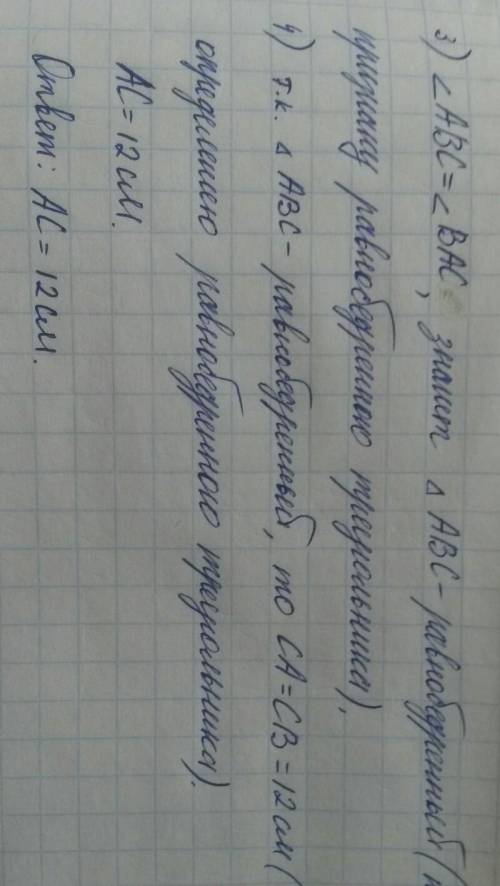 3) ∠ABC=∠BAC, значит △ABC-равнобедренный (
признаку равнобедренного треугольника).
4) т.к. △ABC-равнобедренный, то CA=CB=12см (
определению равнобедренного треугольника).
AC=12см.
Ответ: AC=12см.